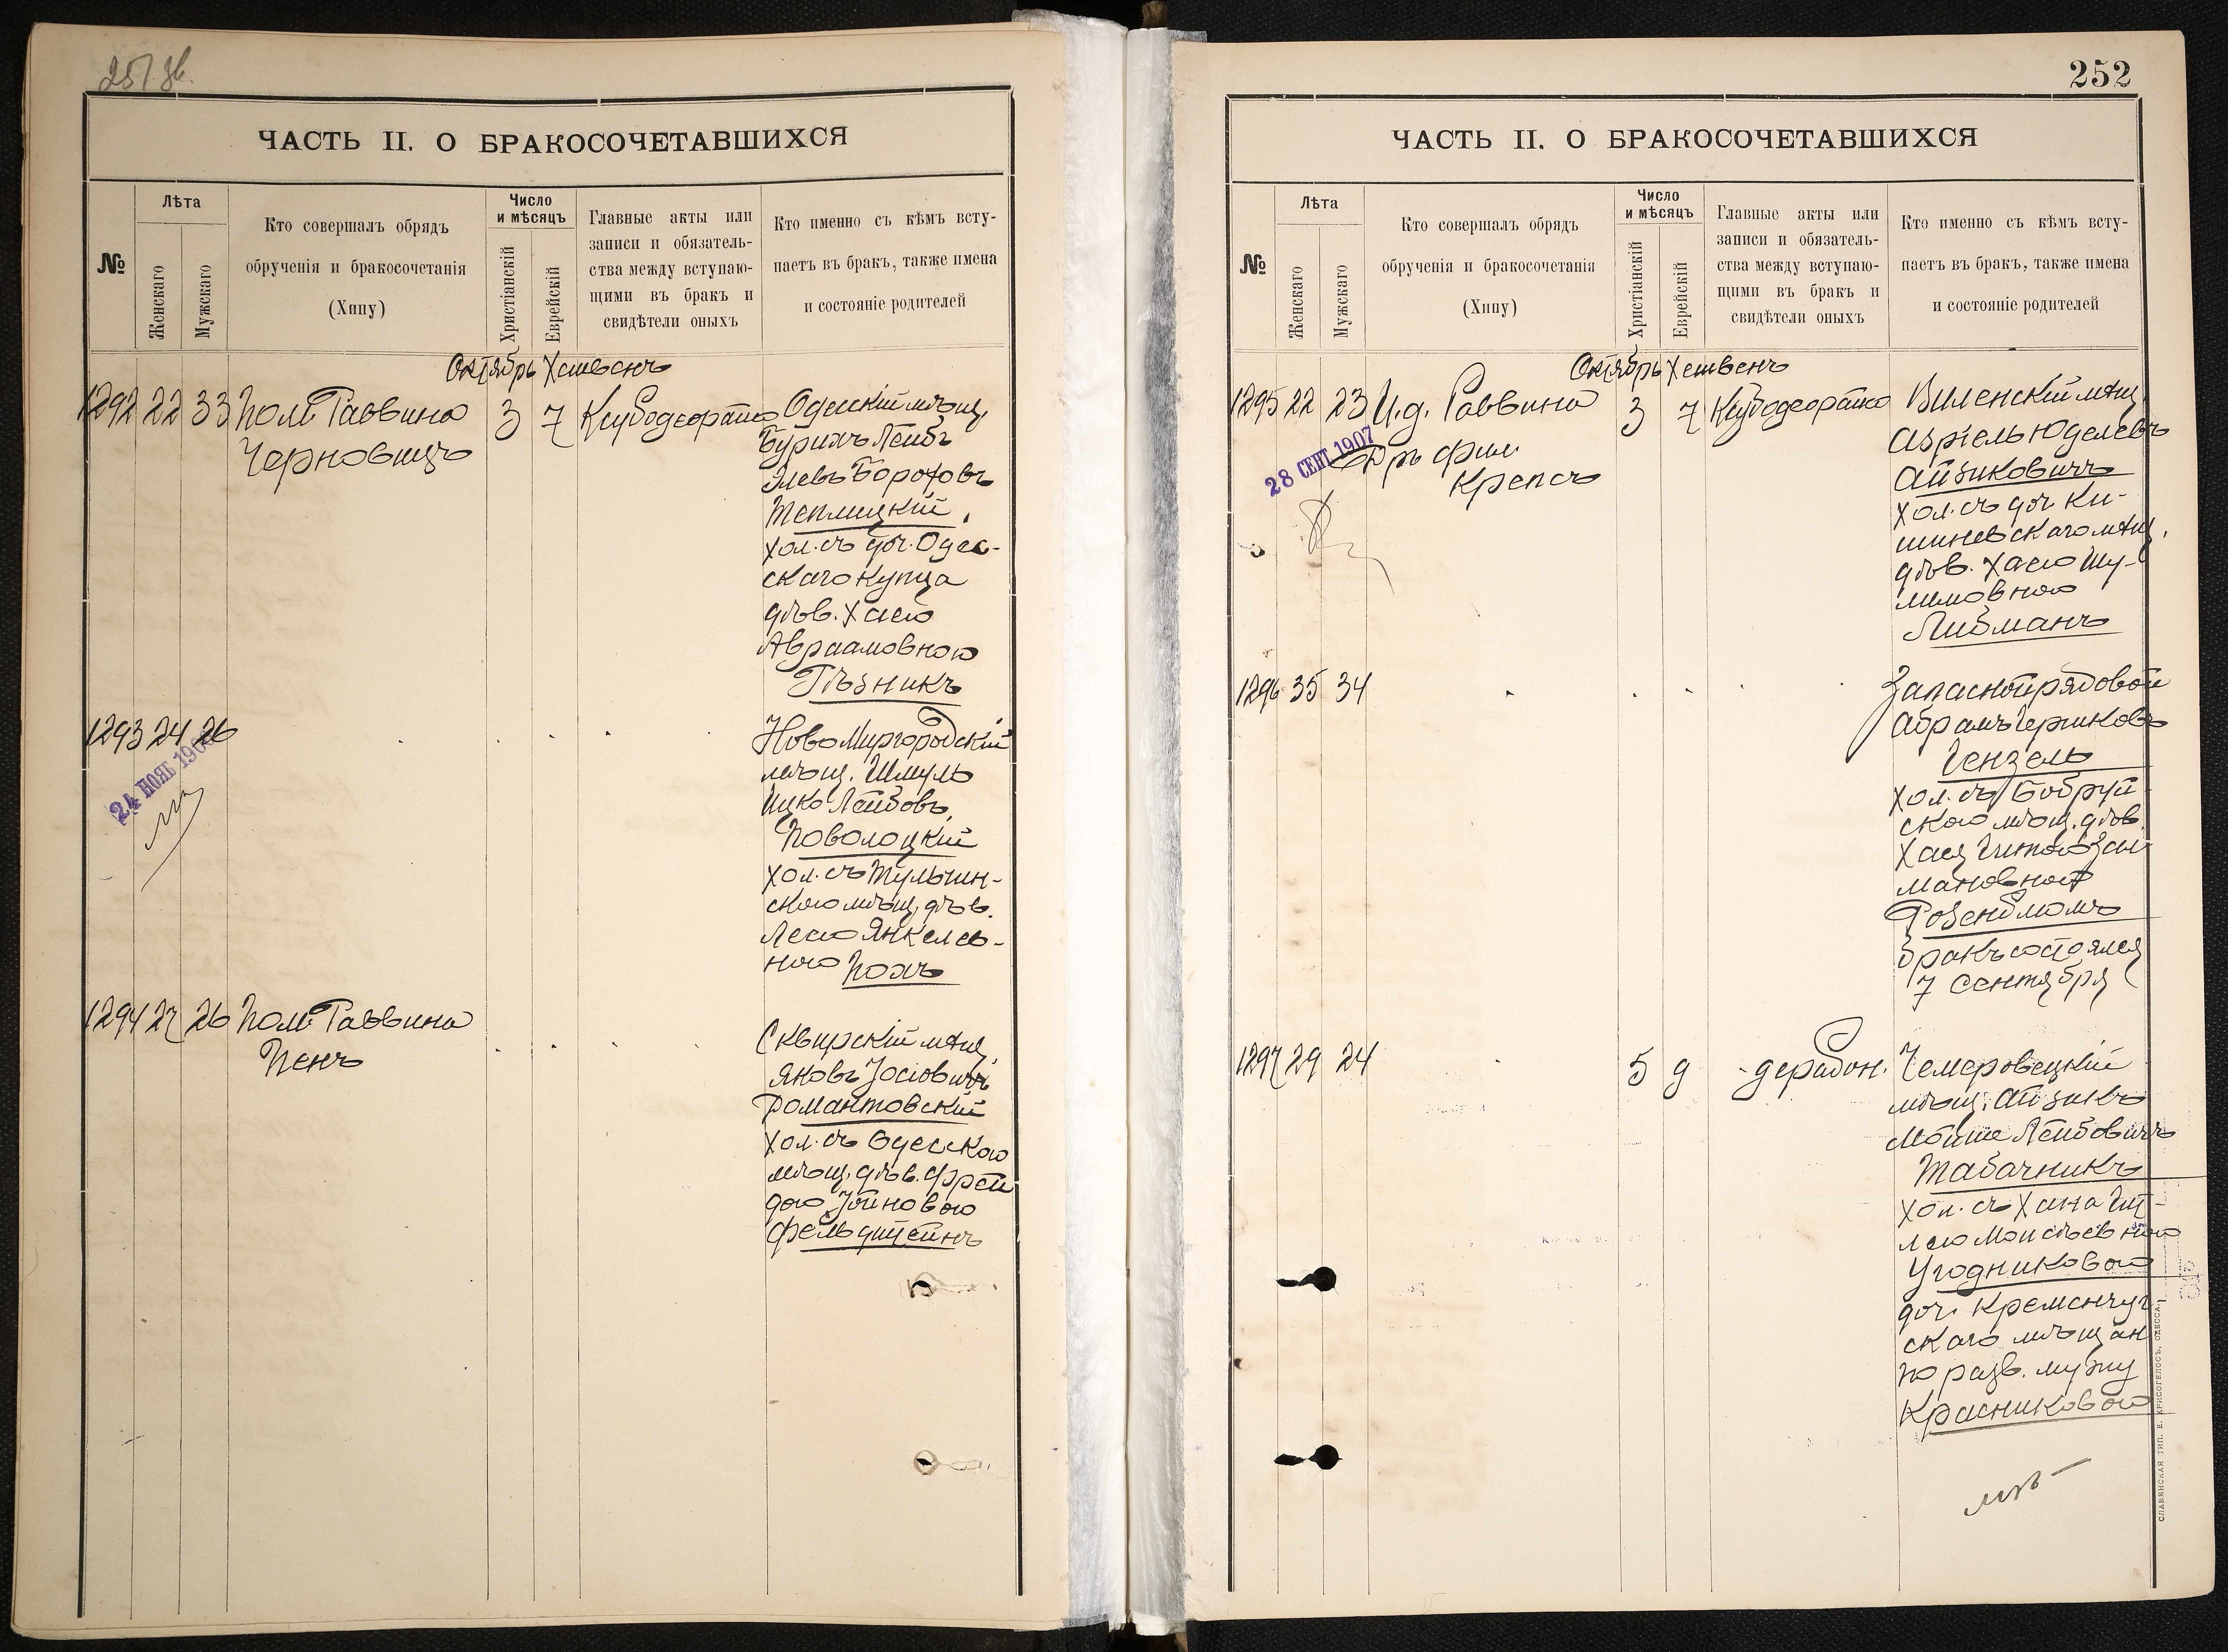 251 зв.
ЧАСТЬ II. О БРАКОСОЧЕТАВШИХСЯ
№
Лѣта
Женскаго
Мужскаго
Кто совершалъ обрядъ
обрученія и бракосочетанія
(Хипу)
Число
и мѣсяцъ
Христіанскій
Еврейскій
Главные акты или
записи и обязатель-
ства между вступаю-
щими въ бракъ и
свидѣтели оныхъ
Кто именно съ кѣмъ всту-
паетъ въ бракъ, также имена
и состояніе родителей
Октябрь Хешвенъ
1292 22 33 Пом. Раввина 3 7
Черновицъ
Одесскій мѣщ.
Бурихъ Лейбъ
Элевъ Бороховъ
Теплицкій,
хол. съ доч. Одес-
скаго купца
дѣв. Хаею
Авраамовною
Рѣзникъ
1293 24 26
24 НОЯБ
НовоМиргородскій
мѣщ. Шмуль
Ицко Лейбовъ
Поволоцкій
хол. съ Тульчин-
скою мѣщ. дѣв.
Леею Янкелев-
ною Похъ
1294 27 26 Пом. Раввина
Пенъ
Сквирскій мѣщ.
Яковъ Іосіовичъ
Романтовскій
хол. съ Одесскою
мѣщ. дѣв. Фрей
дою Іойновою
Фельдштейнъ
252
ЧАСТЬ II. О БРАКОСОЧЕТАВШИХСЯ
№
Лѣта
Женскаго
Мужскаго
Кто совершалъ обрядъ
обрученія и бракосочетанія
(Хипу)
Число
и мѣсяцъ
Христіанскій
Еврейскій
Главные акты или
записи и обязатель-
ства между вступаю-
щими въ бракъ и
свидѣтели оныхъ
Кто именно съ кѣмъ всту-
паетъ въ бракъ, также имена
и состояніе родителей
Октябрь Хешвенъ
1295 22 23 И.д. Раввина 3 7
28 СЕНТ. 1907
Дръ Фил.
Крепсъ
Виленскій мѣщ.
Азріель Юделевъ
Айзиковичъ
хол. съ доч. Ки-
шиневскаго мѣщ.
дѣв. Хаею Шу-
лимовною
Либманъ
1296 35 34
Запасной рядовой
Абрамъ Гершковъ
Гензель
хол. съ Бобруй-
скою мѣщ. дѣв.
Хаея Гитою Зал-
мановной
Розенблюмъ
Бракъ состоялся
7 Сентября
1297 29 24 5 9 -дерабон.
Чемеровецкій
мѣщ. Айзикъ
Мойше Лейбовичъ
Табачникъ
хол. съ Хана Гит-
лею Моисѣевною
Угодниковой
доч. Кременчуг
скаго мѣщан
по разв. мужу
Красниковой
СЛАВЯНСКАЯ ТИП. Е. ХРИСОГЕЛОСЪ, ОДЕССА.